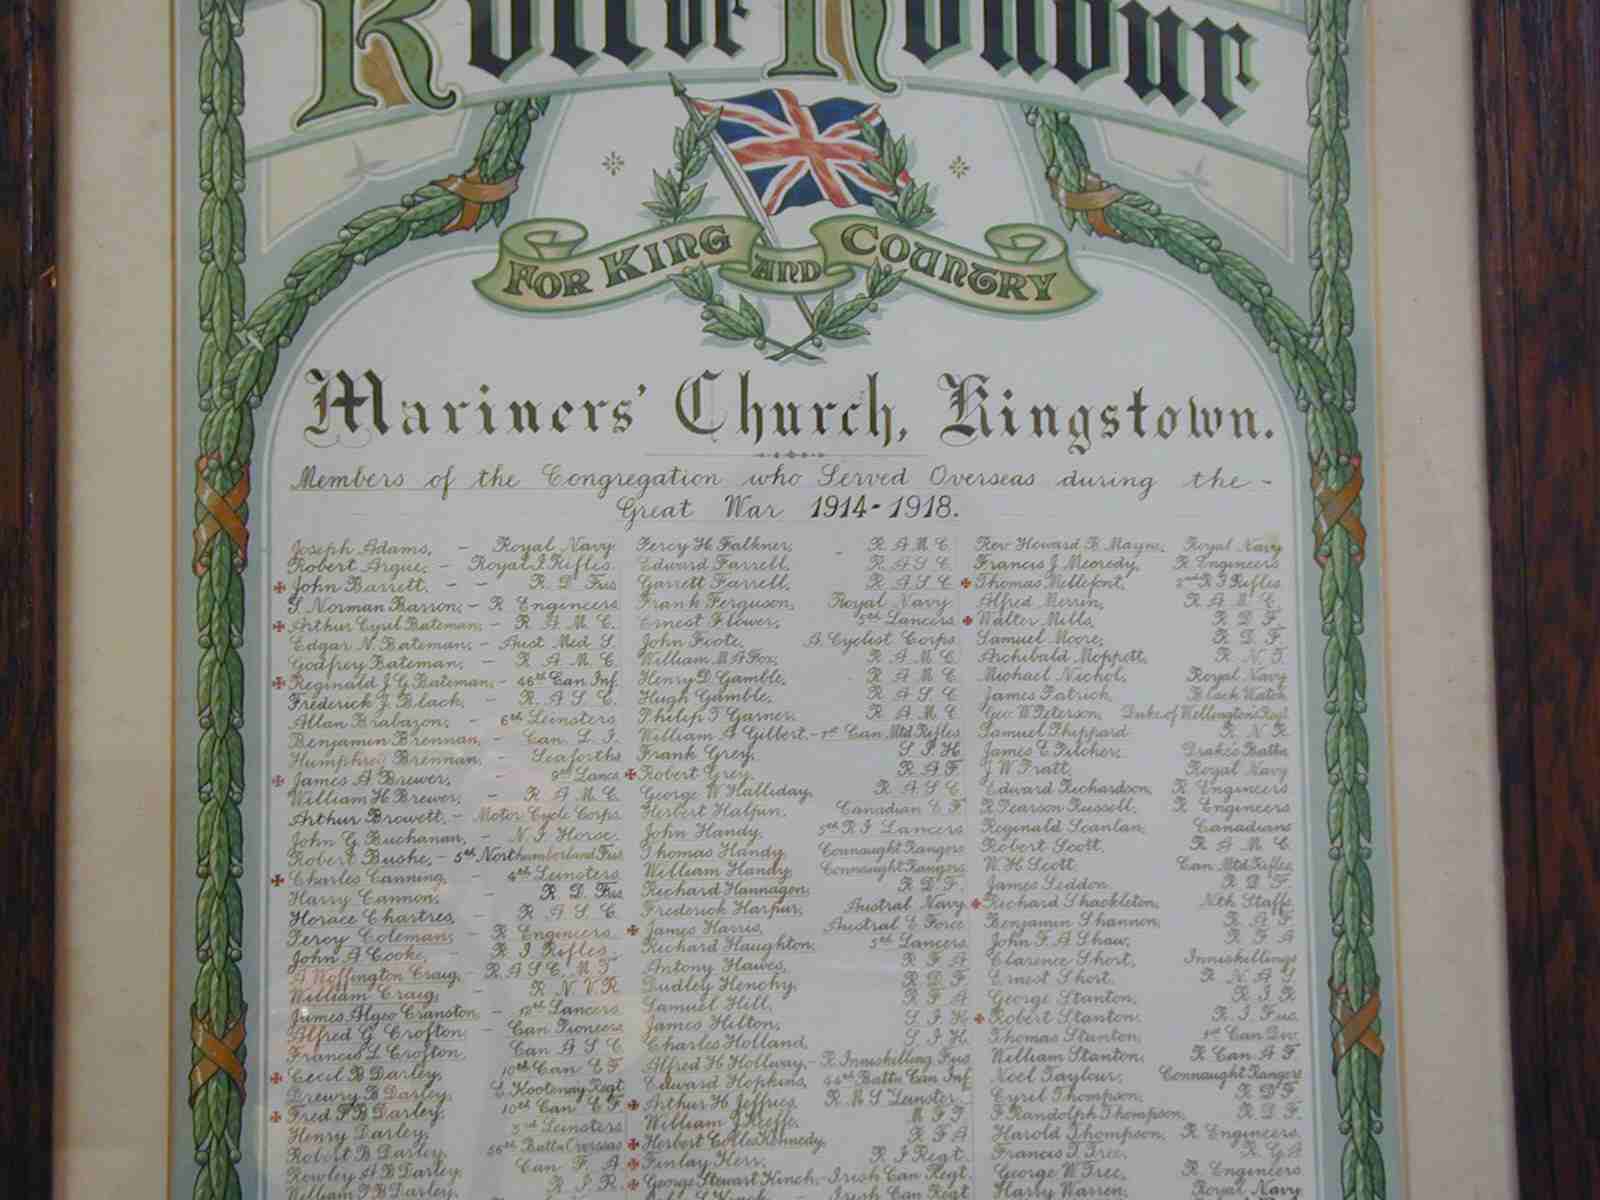 Roll of Honour
FOR KING AND COUNTRY
Mariners' Church, Kingstown.
Members of the Congregation who Served Overseas during the -
Great War 1914-1918.
Joseph Adams, - Royal Navy
Robert Argue, - Royal I Rifles.
John Barrett, - - R. D. Fus
Norman Barron, - R Engineers
Arthur Cyril Bateman, - R. A. M. C.
Edgar N. Bateman, - Aust Med S.
Godfrey Bateman, - R A. M. C.
Reginald J. G. Bateman, - 46th Can Inf.
Frederick J. Black, - R. A. S. C.
Allan Brabazon, - 6th Leinsters
Benjamin Brennan, - Can L. I.
Humphrey Brennan, - Seaforths
James A Brewer, - 9th Lancs
William H. Brewer, - R. A. M. C.
Arthur Browett, - Motor Cycle Corps.
John G. Buchanan, - N. I Horse.
Robert Bushe, - 5th Northumberland Fus
Charles Canning, - 4th Leinsters
Harry Cannon, - R. D. Fus
Horace Chartres, - R A. S. C.
Percy Coleman, - R Engineers
John A Cooke, - R I. Rifles
Woffington Craig, - R A S C, M T
William Craig, - R N V R
James Algeo Cranston - 12th Lancers
Alfred G Crofton Can Pioneers
Francis L Crofton Can A S C
Cecil B Darley, 10th Can E F
Drewry B Darley, Kootenay Regt
Fred F B Darley, 10th Can E F
Henry Darley, 3rd Leinsters
Robert B Darley, 56th Battn Overseas
Rowley A B Darley, Can F. A
William T B Darley, R I R
Percy H. Falkner, - R A M C
Edward Farrell, R A S C
Garrett Farrell, R A S C
Frank Ferguson, Royal Navy
Ernest Flower, 5th Lancers
John Foote, A Cyclist Corps.
William M A Fox, R A M C
Henry D Gamble, R A M C
Hugh Gamble, R A S C
Philip T Garner, R A M C
William A Gilbert, - 1st Can Mtd Rifles
Frank Grey, S I H
Robert Grey, R A F
George W Halliday, R A S C
Herbert Halpin, Canadian E F
John Handy, 5th R I Lancers
Thomas Handy, Connaught Rangers
William Handy, Connaught Rangers
Richard Hannagon, R D F.
Frederick Harpur, Austral Navy
James Harris, Austral E Force
Richard Haughton, 5th Lancers
Antony Hawes, R F A
Dudley Henchy, R D F
Samuel Hill, R F A
James Hilton, S I H
Charles Holland, S I H
Alfred H Hollway, - R Inniskilling Fus
Edward Hopkins, 44th Battn Can Inf
Arthur H Jeffries, R M S Leinster -
William J Keeffe, M F P
Herbert Colles Kennedy, R F A
Finlay Kerr, R I Regt
George Stewart Kinch, - Irish Can Regt
Irish Can Regt
Rev Howard B Mayne, Royal Navy
Francis J Mecredy, R Engineers
Thomas Mellefont, 2nd R I Rifles
Alfred Merrin, R A M C
Walter Mills, R D F
Samuel Moore, R D F
Archibald Moppett, R N T
Michael Nichol, Royal Navy
James Patrick Black Watch
Geo W Peterson, Duke of Wellingtons Regt
Samuel Phippard R N R
James E Pilcher, Drakes Battn
J W Pratt, Royal Navy
Edward Richardson, R Engineers
R Pearson Russell, R Engineers
Reginald Scanlan, Canadians
Robert Scott, R A M C
W H Scott Can Mtd Rifles
James Seddon R D F
Richard Shackleton, Nth Staffs
Benjamin Shannon, R A F
John F. A Shaw, R F A
Clarence Short, Inniskillings
Ernest Short. R N A S
George Stanton, R I R
Robert Stanton, R I. Fus.
Thomas Stanton, 1st Can Div
William Stanton, R Can A F
Noel Taylour, Connaught Rangers
Cyril Thompson, R D F
F Randolph Thompson, R D F.
Harold Thompson, R Engineers
Francis T Tree, R G A
George W Tree, R Engineers
Harry Warren, Royal Navy